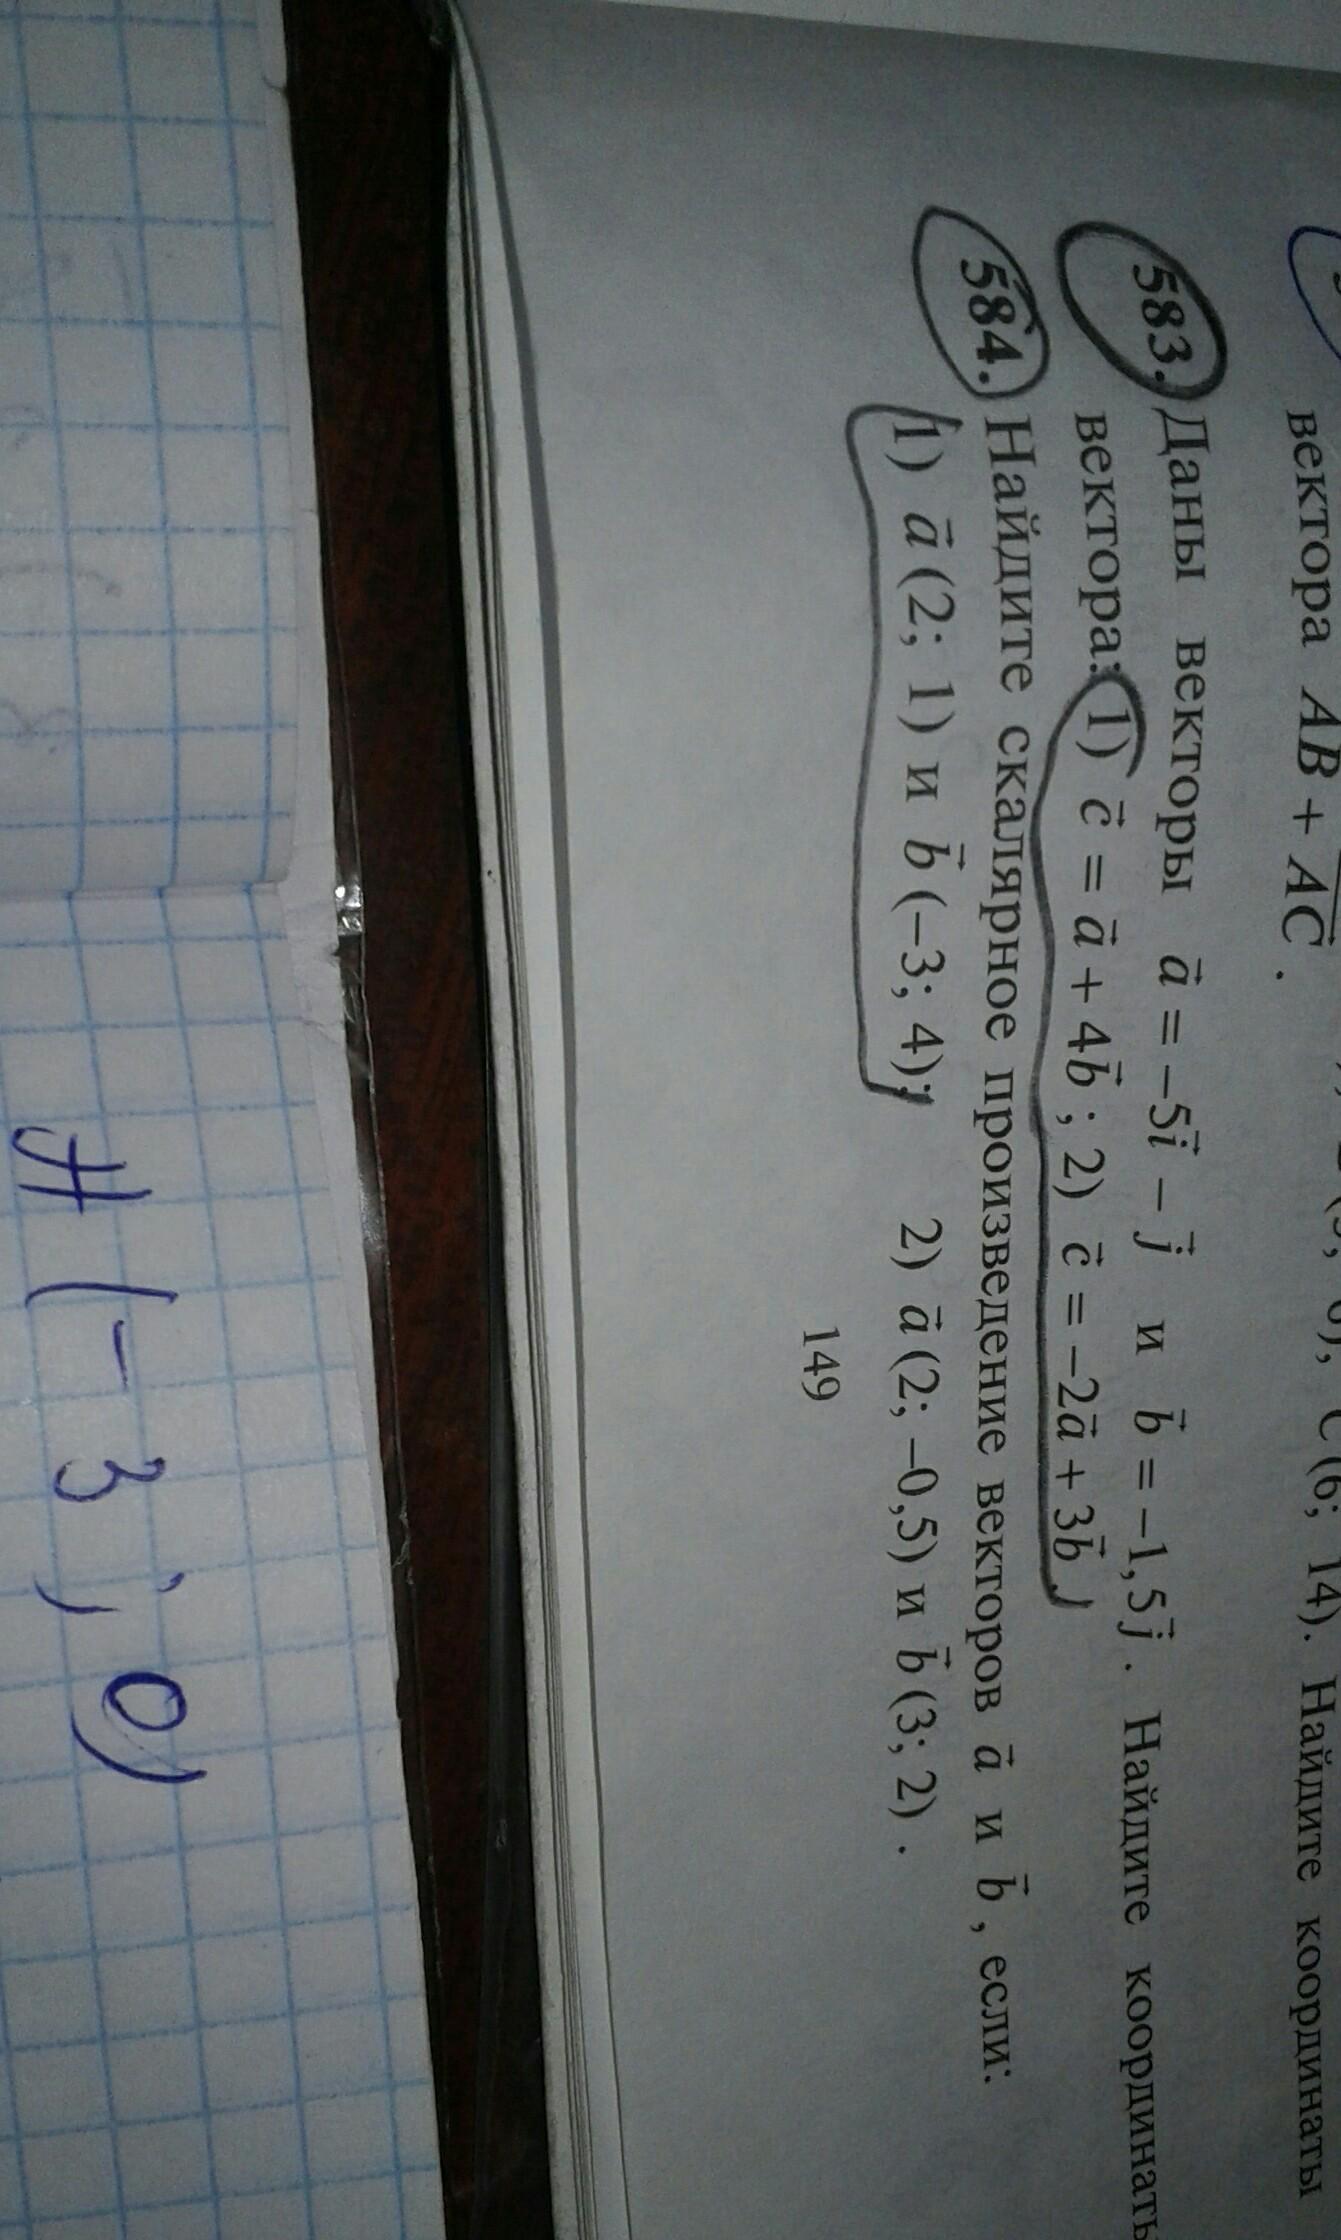 вектора AB + AC.
C(6; 14). Найдите координаты
583. Даны векторы a⃗ = −5i⃗ − j⃗ и b⃗ = −1,5j⃗. Найдите координаты
вектора: 1) c⃗ = a⃗ + 4b⃗; 2) c⃗ = −2a⃗ + 3b⃗.
584. Найдите скалярное произведение векторов a⃗ и b⃗, если:
1) a⃗(2; 1) и b⃗(−3; 4); 2) a⃗(2; −0,5) и b⃗(3; 2).
149
(−3; 0)